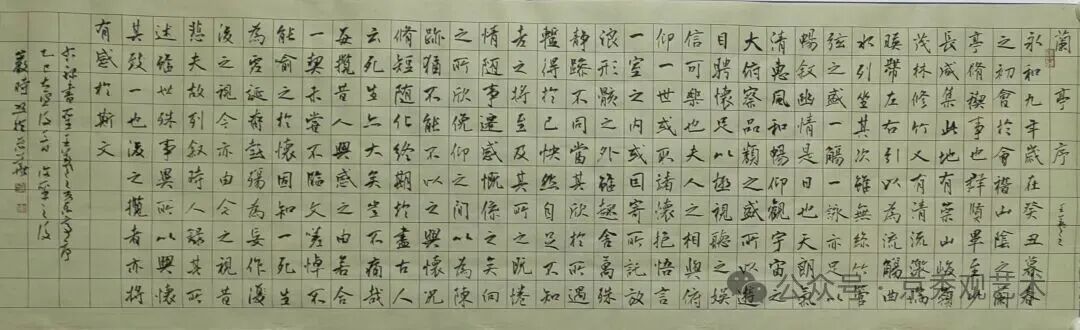 蘭亭序 王羲之
永和九年歲在癸丑暮春
之初會於會稽山陰之蘭
亭脩禊事也群賢畢至少
長咸集此地有崇山峻嶺
茂林修竹又有清流激湍
暎帶左右引以為流觴曲
水列坐其次雖無絲竹管
弦之盛一觴一詠亦足以
暢敘幽情是日也天朗氣
清惠風和暢仰觀宇宙之
大俯察品類之盛所以遊
目騁懷足以極視聽之娛
信可樂也夫人之相與俯
仰一世或取諸懷抱悟言
一室之內或因寄所託放
浪形骸之外雖趣舍萬殊
静躁不同當其欣於所遇
暫得於己怏然自足不知
老之將至及其所之既惓
情隨事遷感慨係之矣向
之所欣俛仰之間以為陳
跡猶不能不以之興懷況
脩短隨化終期於盡古人
云死生亦大矣豈不痛哉
每攬昔人興感之由若合
一契未嘗不臨文嗟悼不
能喻之於懷固知一死生
為虛誕齊彭殤為妄作
後之視今亦由今之視昔
悲夫故列敘時人錄其所
述雖世殊事異所以興懷
其致一也後之攬者亦將
有感於斯文
公众号
观艺术